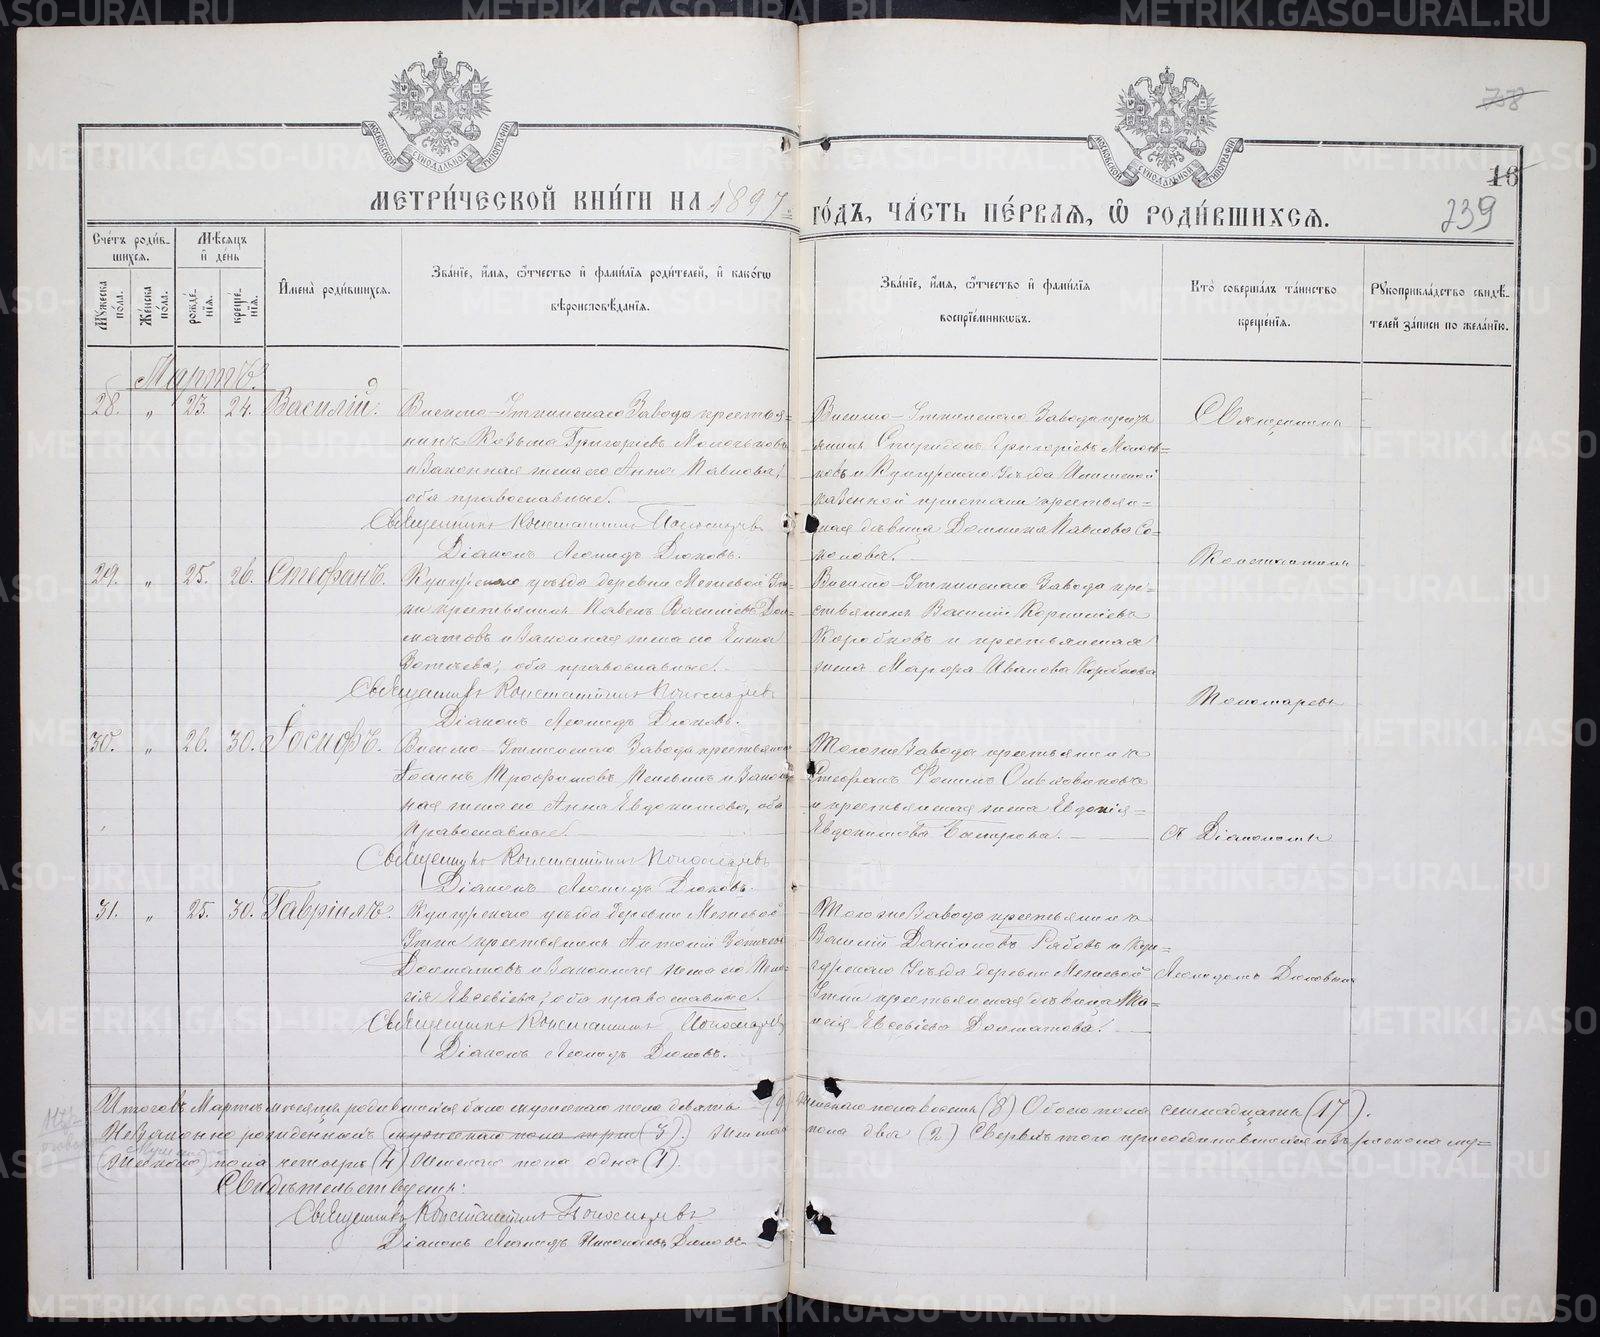 738
16
239
МЕТРИ́ЧЕСКОЙ КНИ́ГИ НА 1897
ГО́ДЪ, ЧА́СТЬ ПЕ́РВАѦ, Ѽ РОДИ́ВШИХСѦ.
Сче́тъ роди́в-
шихсѧ.
Мѣ́сѧцъ
и҆ де́нь
Мꙋ́жеска по́ла.
Же́нска по́ла.
рожде́-
нїѧ.
креще́-
нїѧ.
И҆мена̀ роди́вшихсѧ.
Зва́нїе, и҆́мѧ, ѻ҆́тчество и҆ фами́лїѧ роди́телей, и҆ како́гѡ
вѣроисповѣ́данїѧ.
Зва́нїе, и҆́мѧ, ѻ҆́тчество и҆ фами́лїѧ
воспрїе́мникѡвъ.
Кто̀ соверша́лъ та́инство
креще́нїѧ.
Рꙋкоприкла́дство свидѣ́-
телей за́писи по жела́нїю.
Мартъ.
28. „ 23. 24. Василій.
Завода крестья-
нинъ Козьма Григорьевъ
и законная жена его Анна Павлова,
оба православные.
Священникъ Константинъ Пономаревъ
Діаконъ Леонидъ Дюковъ.
Завода крестья-
янинъ Спиридонъ Григорьевъ
и Кунгурскаго Уѣзда
казенной пристани крестьян-
ская дѣвица Павлова Со-
колова.
Священникъ
29. „ 25. 26. Стефанъ.
Кунгурскаго уѣзда деревни Межевой Ут-
ки крестьянинъ Павелъ Васильевъ Дол-
матовъ и законная жена его Елена
оба православные.
Священникъ Константинъ Пономаревъ
Діаконъ Леонидъ Дюковъ.
Завода кре-
стьянинъ Василій Корниліевъ
Коробковъ и крестьянская
жена Марѳа Иванова Коробкова
Константинъ
Пономаревъ
30. „ 26. 30. Іосифъ.
Завода крестьянинъ
Іоаннъ Трофимовъ и закон-
ная жена его Анна Евдокимова, оба
православные.
Священникъ Константинъ Пономаревъ
Діаконъ Леонидъ Дюковъ.
Тогоже Завода крестьянинъ
Стефанъ Ѳоминъ
и крестьянская жена Евдокія
Евдокимова
съ Діакономъ
31. „ 25. 30. Гавріилъ.
Кунгурскаго уѣзда деревни Межевой
Утки крестьянинъ Антоній
Долматовъ и законная жена его
Евсевіева, оба православные.
Священникъ Константинъ Пономаревъ
Діаконъ Леонидъ Дюковъ.
Тогоже Завода крестьянинъ
Василій Даніиловъ Рябовъ и Кун-
гурскаго Уѣзда деревни Межевой
Утки крестьянская дѣвица Та-
исія Евсевіева Долматова.
Леонидомъ Дюковымъ
Итого въ Мартѣ мѣсяцѣ родившихся было мужескаго пола девять (9) Женскаго пола восемь (8) Обоего пола семнадцать (17).
Незаконнорожденныхъ мужескаго пола три (3). Женскаго пола два (2) Сверхъ того присоединившихся изъ раскола му-
жескаго пола четыре (4) Женскаго пола одна (1).
Свидѣтельствуемъ:
Священникъ Константинъ Пономаревъ
Діаконъ Леонидъ Николаевъ Дюковъ
METRIKI.GASO-URAL.RU